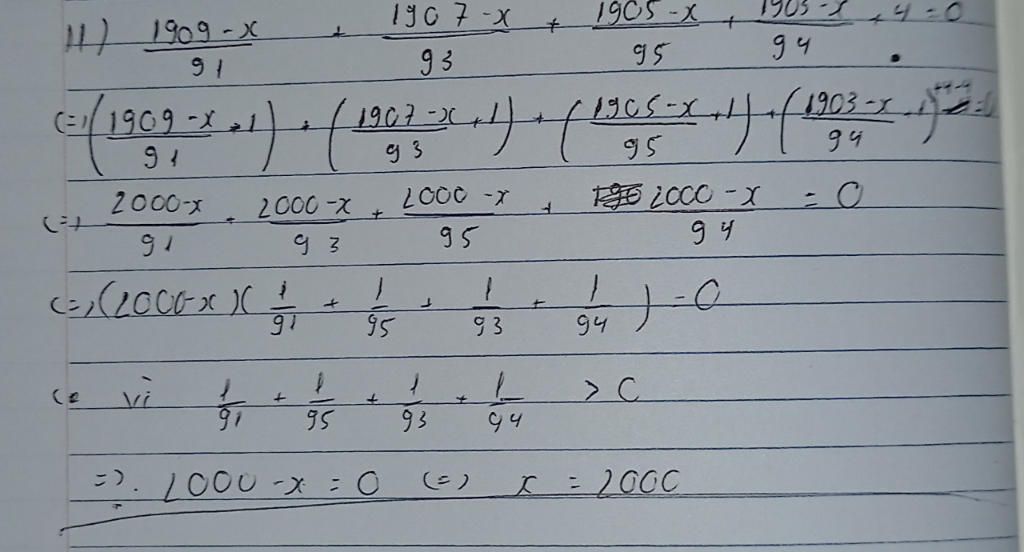 11) \frac{1909-x}{91} + \frac{1907-x}{93} + \frac{1905-x}{95} + \frac{1903-x}{94} + 4 = 0
<=> (\frac{1909-x}{91} + 1) + (\frac{1907-x}{93} + 1) + (\frac{1905-x}{95} + 1) + (\frac{1903-x}{94} + 1)
<=> \frac{2000-x}{91} + \frac{2000-x}{93} + \frac{2000-x}{95} + \frac{2000-x}{94} = 0
<=> (2000-x)(\frac{1}{91} + \frac{1}{95} + \frac{1}{93} + \frac{1}{94}) = 0
vì \frac{1}{91} + \frac{1}{95} + \frac{1}{93} + \frac{1}{94} > 0
=> 2000 - x = 0 <=> x = 2000